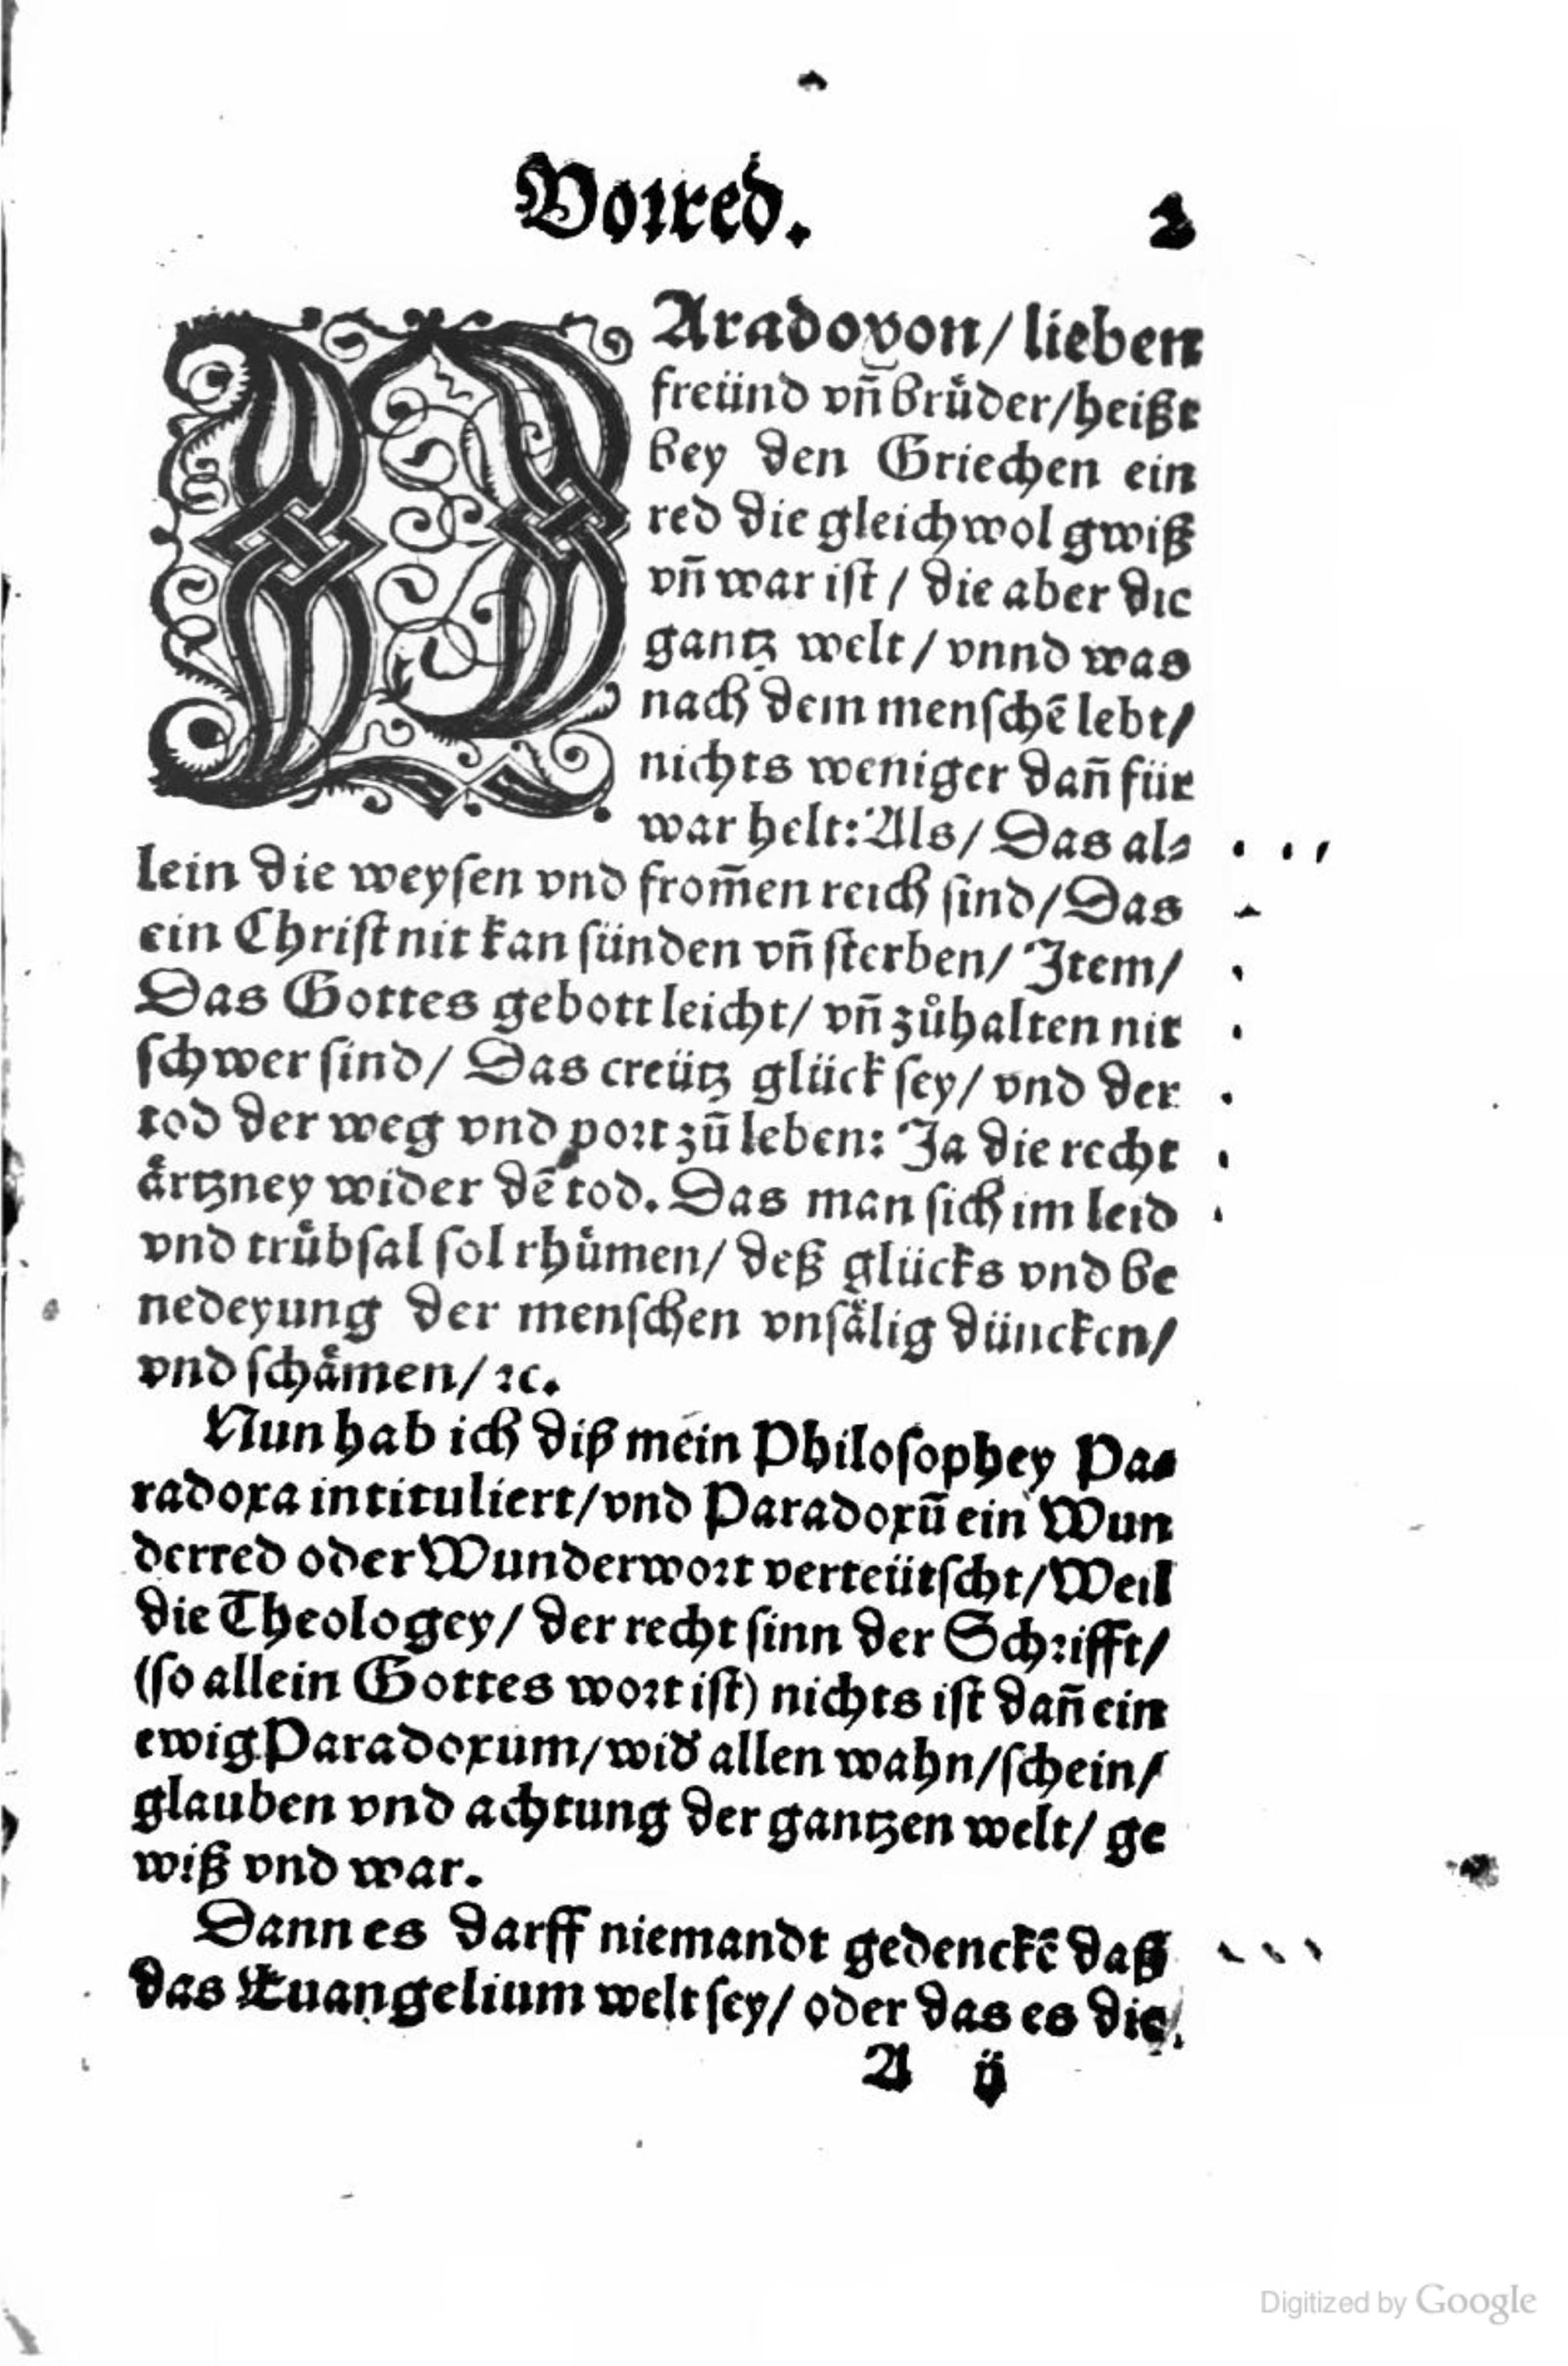 Vorred. 2
PAradoxon/ lieben
freünd vñ brůder/heißt
bey den Griechen ein
red die gleich wol gwiß
vñ war ist / die aber die
gantz welt / vnnd was
nach dem menschẽ lebt/
nichts weniger dañ für
war helt: Als/ Das al⸗
lein die weysen vnd from̃en reich sind/ Das
ein Christ nit kan sünden vñ sterben/ Item/
Das Gottes gebott leicht/ vñ zůhalten nit
schwer sind/ Das creütz glück sey/ vnd der
tod der weg vnd port zũ leben: Ja die recht
aͤrtzney wider dẽ tod. Das man sich im leid
vnd truͤbsal sol rhuͤmen/ deß glücks vnd be
nedeyung der menschen vnsaͤlig düncken/
vnd schaͤmen/ ꝛc.
Nun hab ich diß mein Philosophey Pa⸗
radoxa intituliert/vnd Paradoxũ ein Wun
derred oder Wunderwort verteütscht/ Weil
die Theologey/ der recht sinn der Schrifft/
(so allein Gottes wort ist) nichts ist dañ ein
ewig Paradoxum/wid' allen wahn/schein/
glauben vnd achtung der gantzen welt/ ge
wiß vnd war.
Dann es darff niemandt gedenckẽ daß
das Euangelium welt sey/ oder das es die
A ij
Digitized by Google